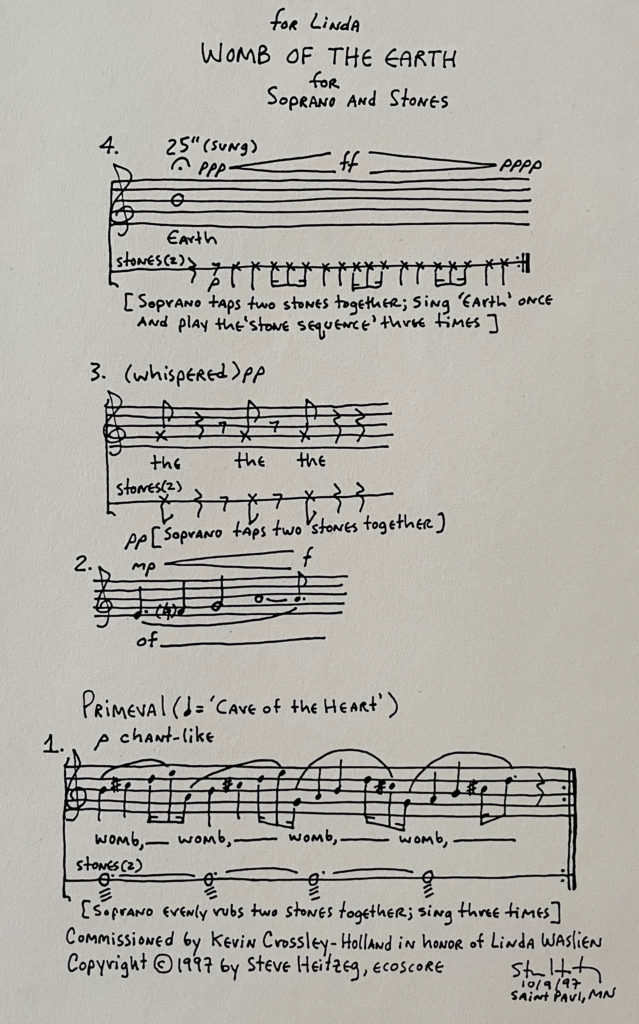 for Linda
Womb of the Earth
for
Soprano and Stones
4. 25" (sung)
ppp ff pppp
Earth
stones(2)
p
[Soprano taps two stones together; sing 'Earth' once
and play the 'stone sequence' three times]
3. (whispered) pp
the the the
stones(2)
pp [Soprano taps two stones together]
2. mp f
of
Primeval (♩= 'Cave of the Heart')
1. p chant-like
womb, womb, womb, womb,
stones(2)
[Soprano evenly rubs two stones together; sing three times]
Commissioned by Kevin Crossley-Holland in honor of Linda Waslien
Copyright © 1997 by Steve Heitzeg, ecoscore
10/9/97
Saint Paul, MN